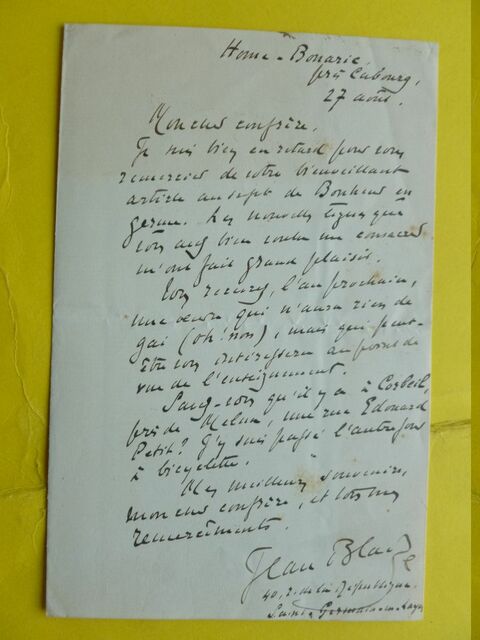 Home-Bonarie,
près Cabourg,
27 août.
Mon cher confrère,
Je suis bien en retard pour vous
remercier de votre bienveillant
article au sujet de Bonheur en
germe. Les nouvelles lignes que
vous avez bien voulu me consacrer
m'ont fait grand plaisir.
Vous recevrez, l'an prochain,
une œuvre qui n'aura rien de
gai (oh! non), mais qui peut-
être vous intéressera au point de
vue de l'enseignement.
Savez-vous qu'il y a à Corbeil,
près de Melun, une rue Edouard
Petit? J'y suis passé l'autre jour
à bicyclette.
Mes meilleurs souvenirs,
mon cher confrère, et tous mes
remerciements.
Jean Blaize
40, r. de la République
Saint-Germain-en-Laye